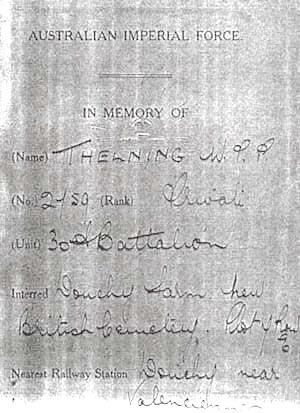 AUSTRALIAN IMPERIAL FORCE.
IN MEMORY OF
(Name) THELNING W. P. P
(No.) 2/59 (Rank) Private
(Unit) 30th Battalion
Interred Douchy Farm New
British Cemetery. Plot
Nearest Railway Station Douchy near